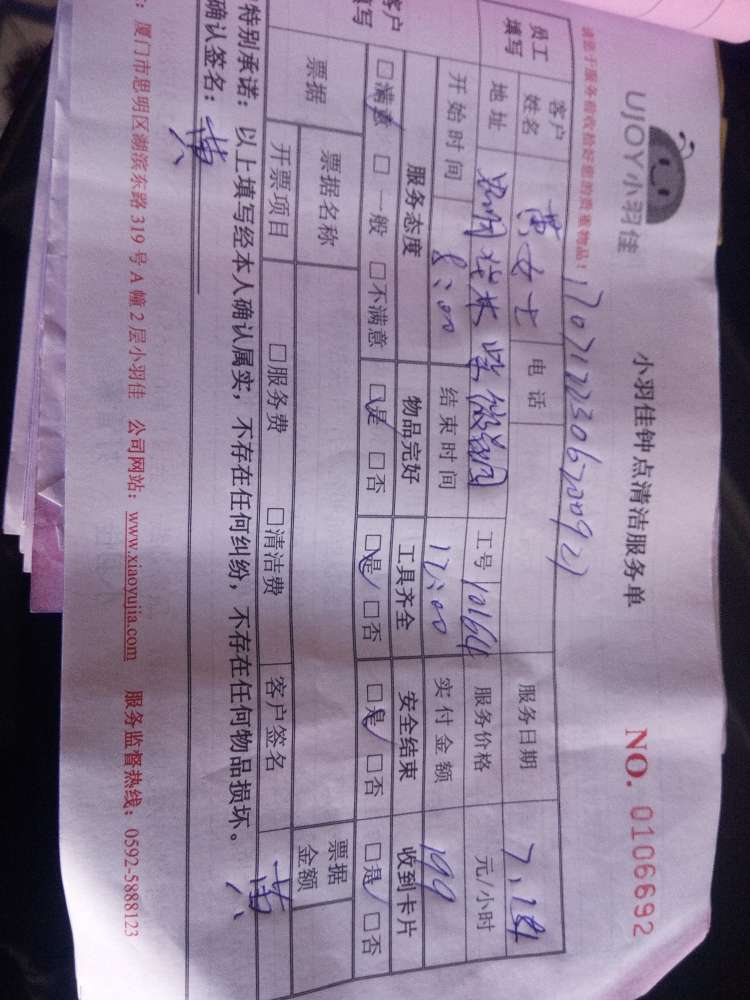 UJOY小羽佳
小羽佳钟点清洁服务单
NO. 0106692
请您于服务前收拾好您的贵重物品！
员工填写 客户姓名 黄女士 电话 服务日期 7.14
地址 紫薇阁 工号 10164 服务价格 元/小时
开始时间 8:00 结束时间 12:00 实付金额 199
客户填写 服务态度 物品完好 工具齐全 安全结束 收到卡片
□满意 □一般 □不满意 □是 □否 □是 □否 □是 □否 □是 □否
票据 票据名称 票据金额
开票项目 □服务费 □清洁费 客户签名 黄
特别承诺：以上填写经本人确认属实，不存在任何纠纷，不存在任何物品损坏。
确认签名：黄
厦门市思明区湖滨东路319号A幢2层小羽佳 公司网站：www.xiaoyujia.com 服务监督热线：0592-5888123